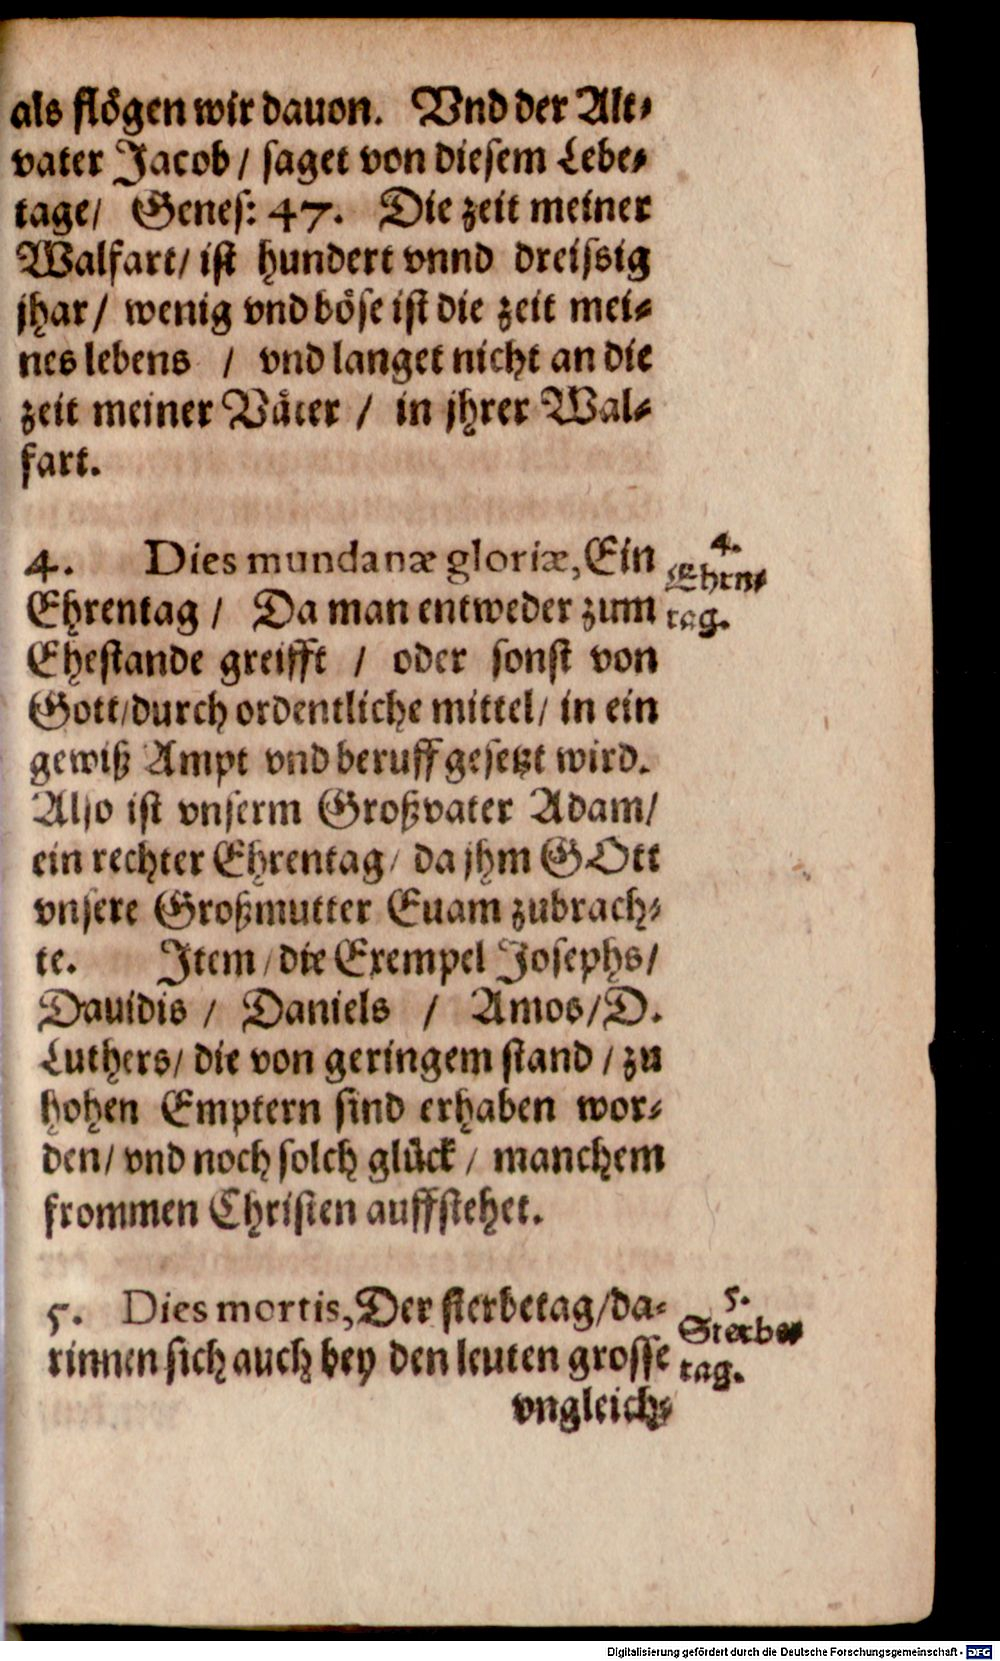 als flögen wir dauon. Vnd der Alt-
vater Jacob / saget von diesem Lebe-
tage/ Genes: 47. Die zeit meiner
Walfart/ ist hundert vnnd dreissig
jhar / wenig vnd böse ist die zeit mei-
nes lebens / vnd langet nicht an die
zeit meiner Väter / in jhrer Wal-
fart.
4. Dies mundanæ gloriæ, Ein
Ehrentag / Da man entweder zum
Ehestande greifft / oder sonst von
Gott/durch ordentliche mittel/ in ein
gewiß Ampt vnd beruff gesetzt wird.
Also ist vnserm Großvater Adam/
ein rechter Ehrentag/ da jhm GOtt
vnsere Großmutter Euam zubrach-
te. Item/die Exempel Josephs/
Dauidis / Daniels / Amos/D.
Luthers/ die von geringem stand / zu
hohen Emptern sind erhaben wor-
den/ vnd noch solch glück / manchem
frommen Christen auffstehet.
4.
Ehrn-
tag.
5. Dies mortis, Der sterbetag/da-
rinnen sich auch bey den leuten grosse
vngleich-
5.
Sterbe-
tag.
Digitalisierung gefördert durch die Deutsche Forschungsgemeinschaft - DFG